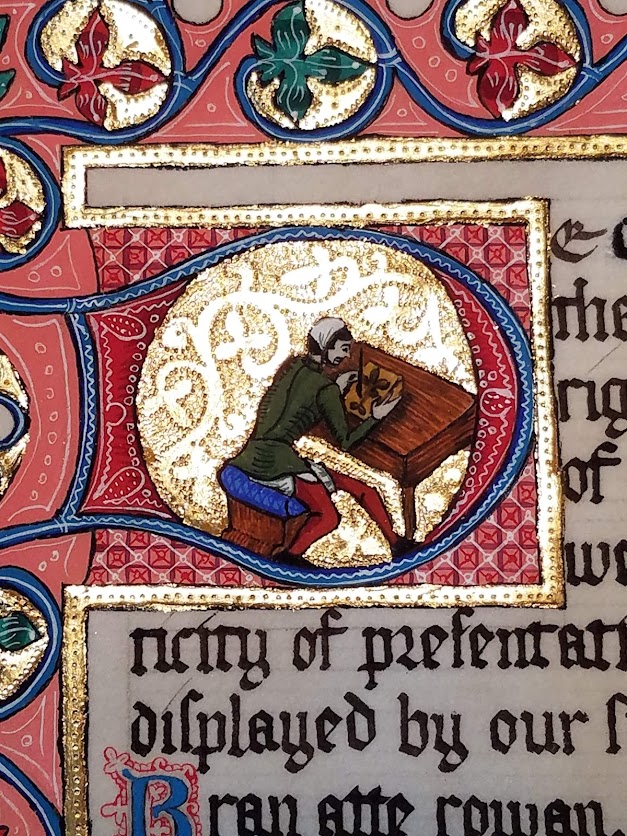 De
the
rig
of
we
ticity of preſentati
diſplayed by our ſ
Bran atte rowan